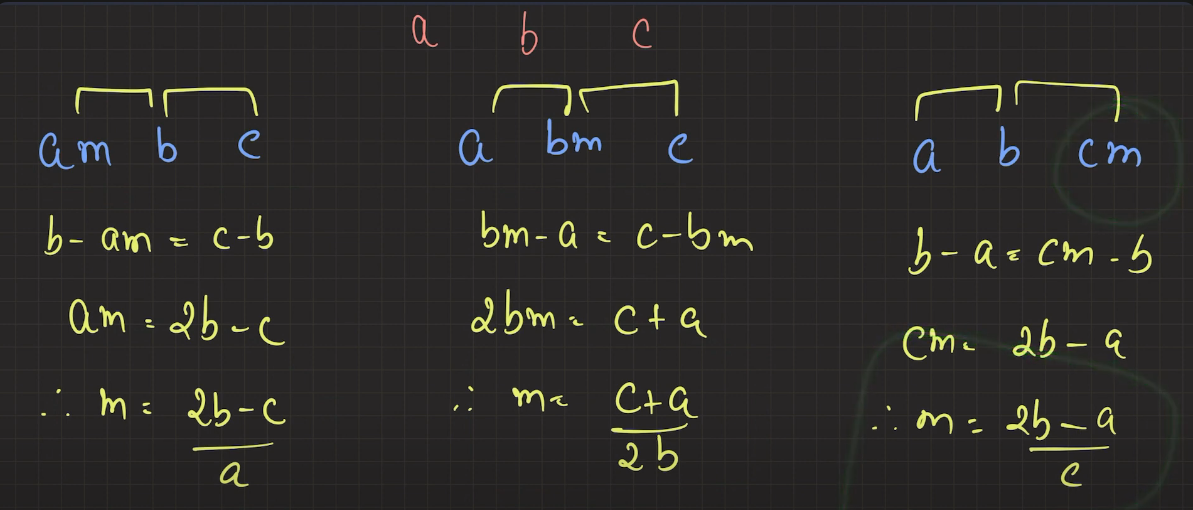 a b c
am b c
b - am = c - b
am = 2b - c
∴ m = 2b - c
a
a bm c
bm - a = c - bm
2bm = c + a
∴ m = c + a
2b
a b cm
b - a = cm - b
cm = 2b - a
∴ m = 2b - a
c